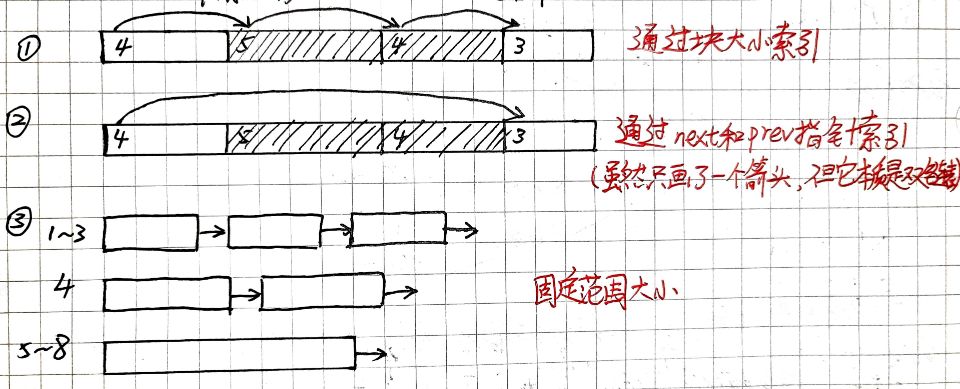 ① 4 5 4 3 通过块大小索引
② 4 5 4 3 通过next和prev指针索引
(虽然只画了一个箭头,但它本质是双向链表)
③ 1~3
4 固定范围大小
5~8